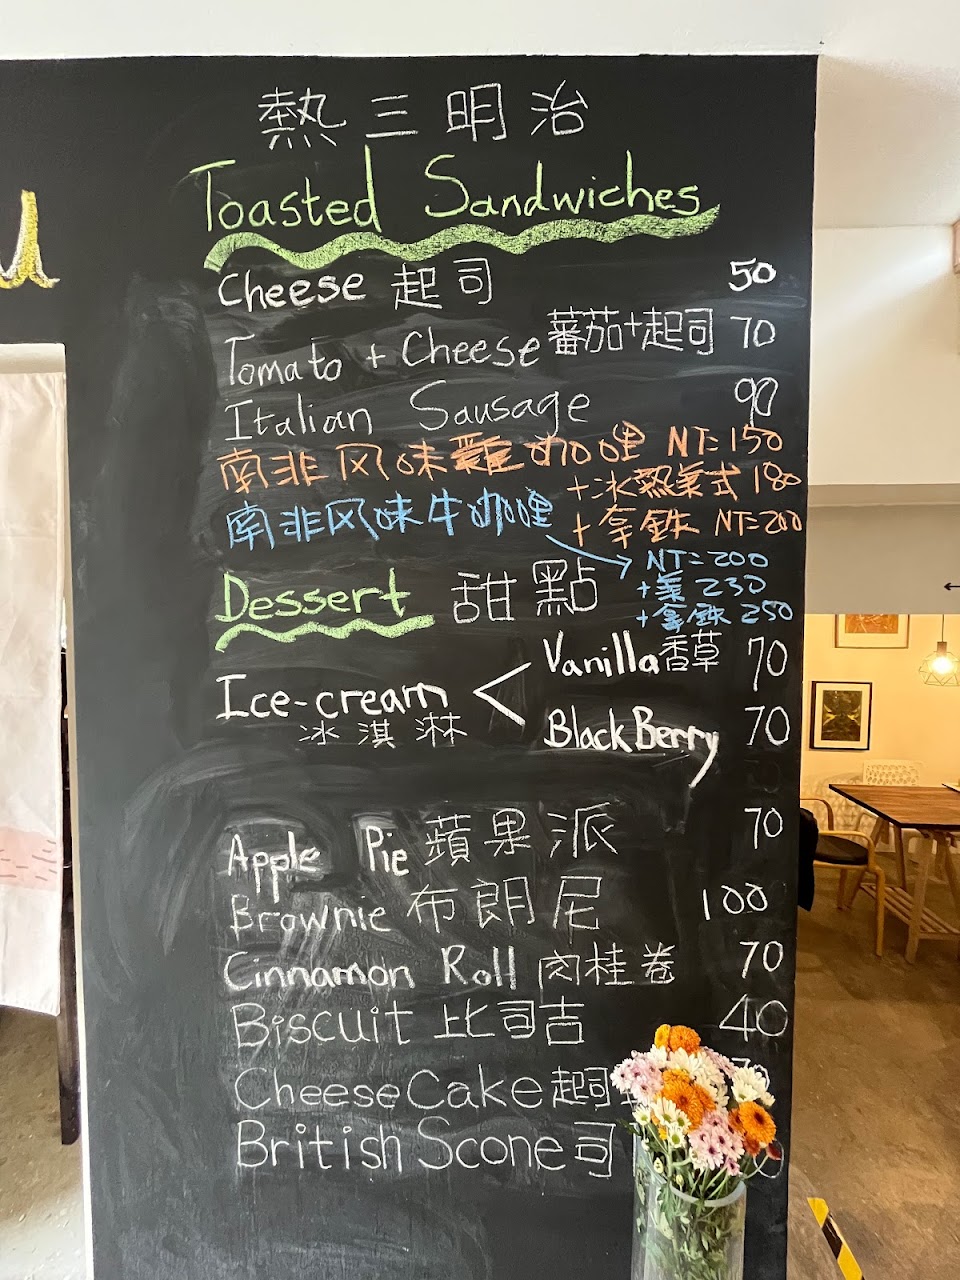 熱三明治
Toasted Sandwiches
Cheese 起司 50
Tomato + Cheese 蕃茄+起司 70
Italian Sausage 90
南非风味雞咖哩 NT=150
+冰熱美式 180
+拿鉄 NT=200
南非风味牛咖哩
NT=200
+美 230
+拿鉄 250
Dessert 甜點
Ice-cream
冰淇淋
Vanilla 香草 70
BlackBerry 70
Apple Pie 蘋果派 70
Brownie 布朗尼 100
Cinnamon Roll 肉桂卷 70
Biscuit 比司吉 40
CheeseCake 起司
British Scone 司